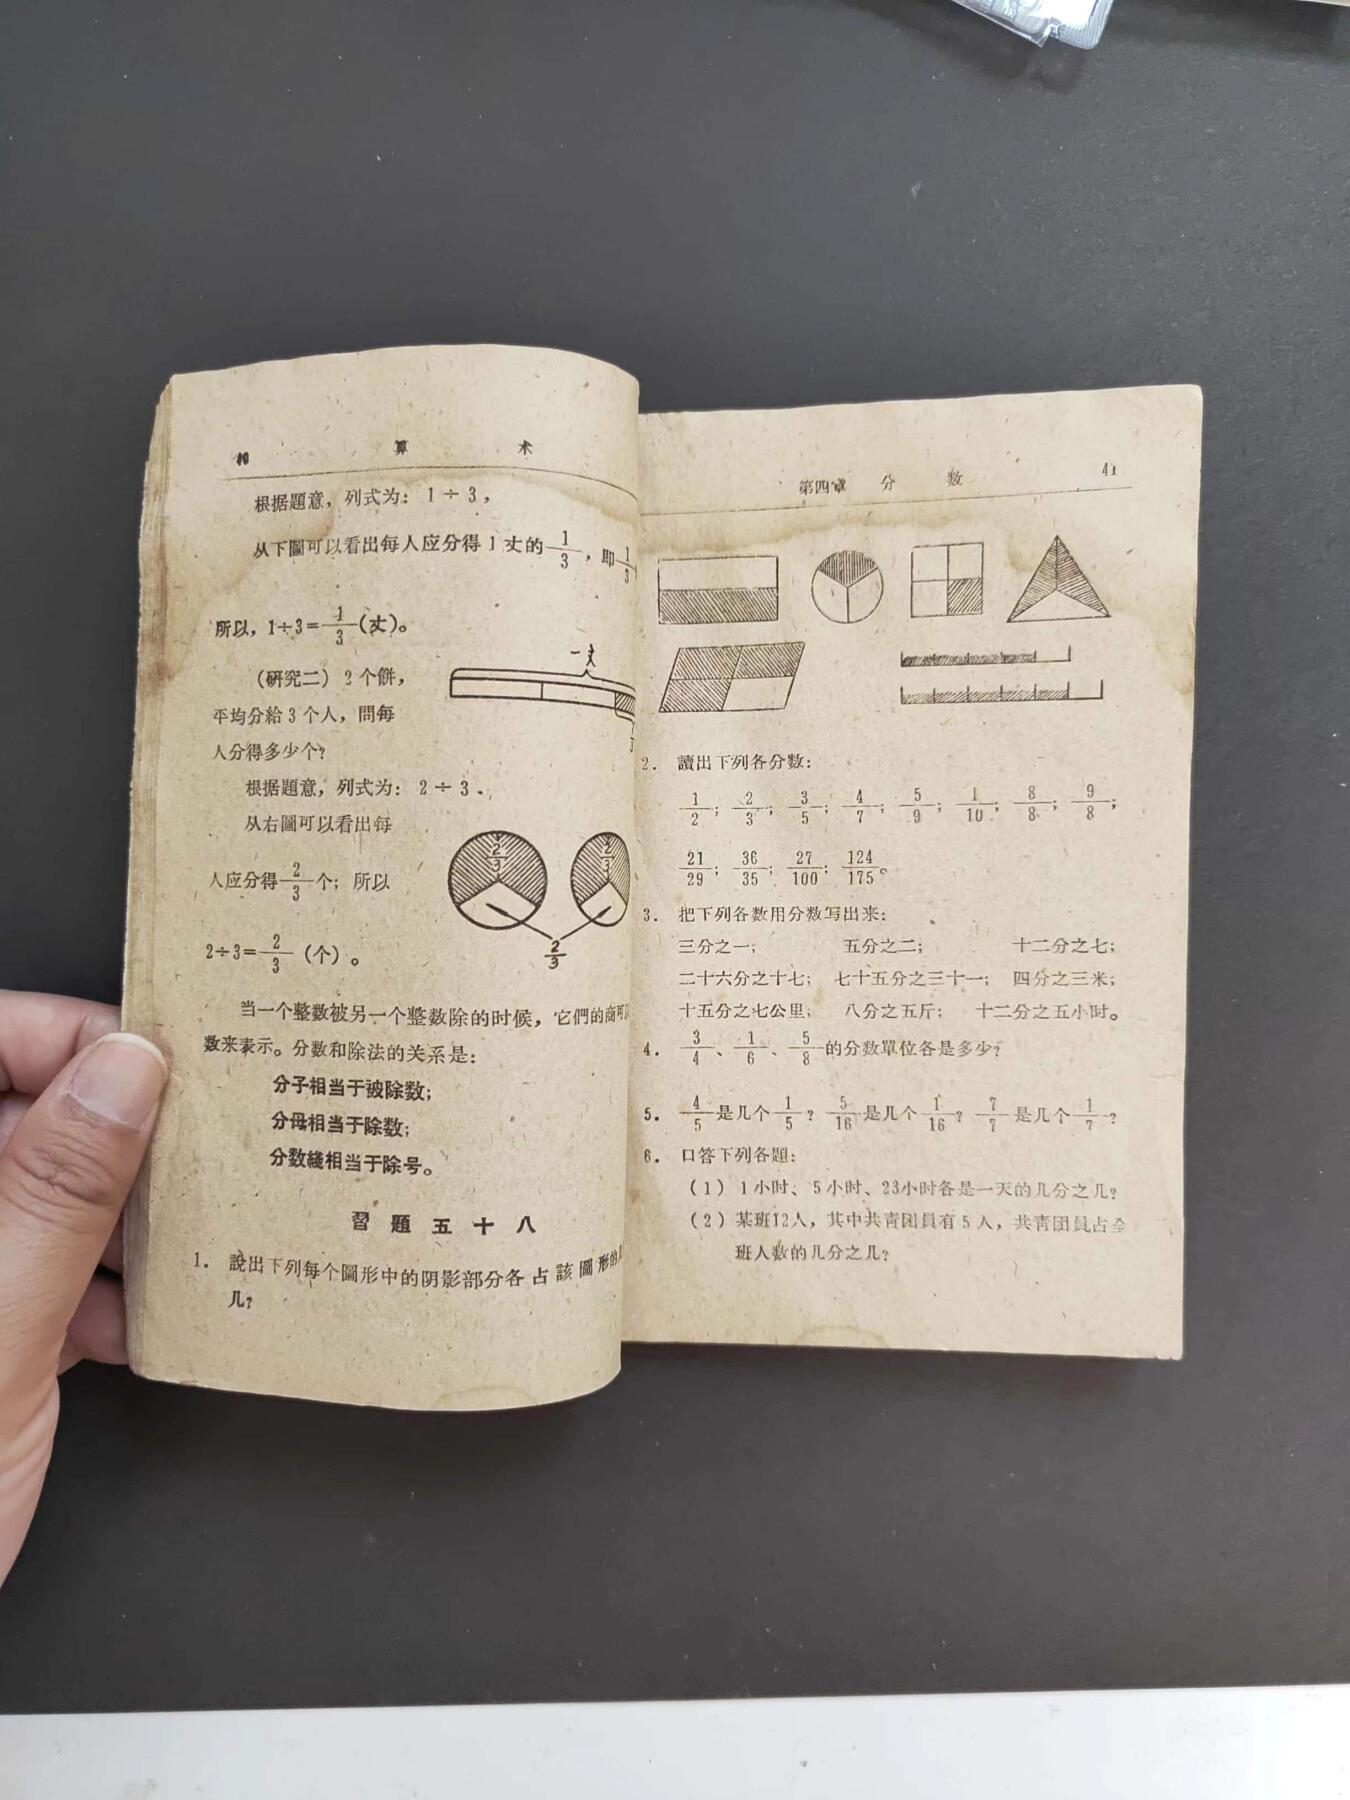 40 算 术
根据題意，列式为：1÷3，
从下圖可以看出每人应分得1丈的1/3，即1/3
所以，1÷3=1/3(丈)。
一丈
(研究二) 2个餅，
平均分給3个人，問每
人分得多少个？
根据題意，列式为：2÷3．
从右圖可以看出每
人应分得2/3个；所以
2÷3=2/3 (个)。
2/3 2/3
2/3
当一个整数被另一个整数除的时候，它們的商可
数来表示。分数和除法的关系是：
分子相当于被除数；
分母相当于除数；
分数綫相当于除号。
習題五十八
1. 說出下列每个圖形中的阴影部分各占該圖形的
几？
第四章 分 数 41
2. 讀出下列各分数：
1/2；2/3；3/5；4/7；5/9；1/10；8/8；9/8；
21/29；36/35；27/100；124/175。
3. 把下列各数用分数写出来：
三分之一； 五分之二； 十二分之七；
二十六分之十七； 七十五分之三十一； 四分之三米；
十五分之七公里； 八分之五斤； 十二分之五小时。
4. 3/4、1/6、5/8的分数單位各是多少？
5. 4/5是几个1/5？5/16是几个1/16？7/7是几个1/7？
6. 口答下列各題：
(1) 1小时、5小时、23小时各是一天的几分之几？
(2) 某班12人，其中共靑团員有5人，共靑团員占全
班人数的几分之几？